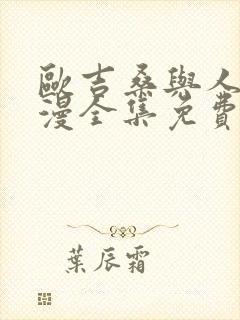 歐吉桑與人
漫全集免費
葉辰霜